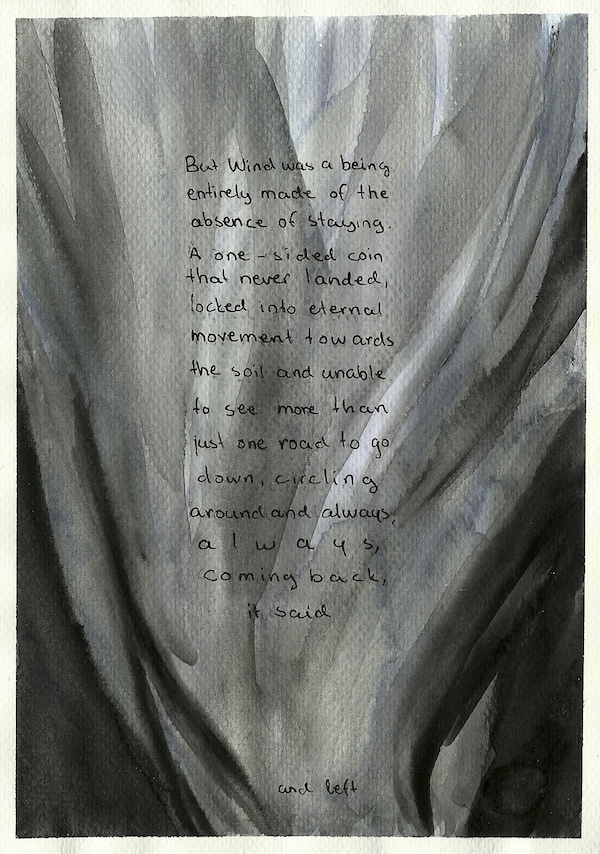 But Wind was a being
entirely made of the
absence of staying.
A one-sided coin
that never landed,
locked into eternal
movement towards
the soil and unable
to see more than
just one road to go
down, circling
around and always,
a l w a y s,
coming back,
it said
and left